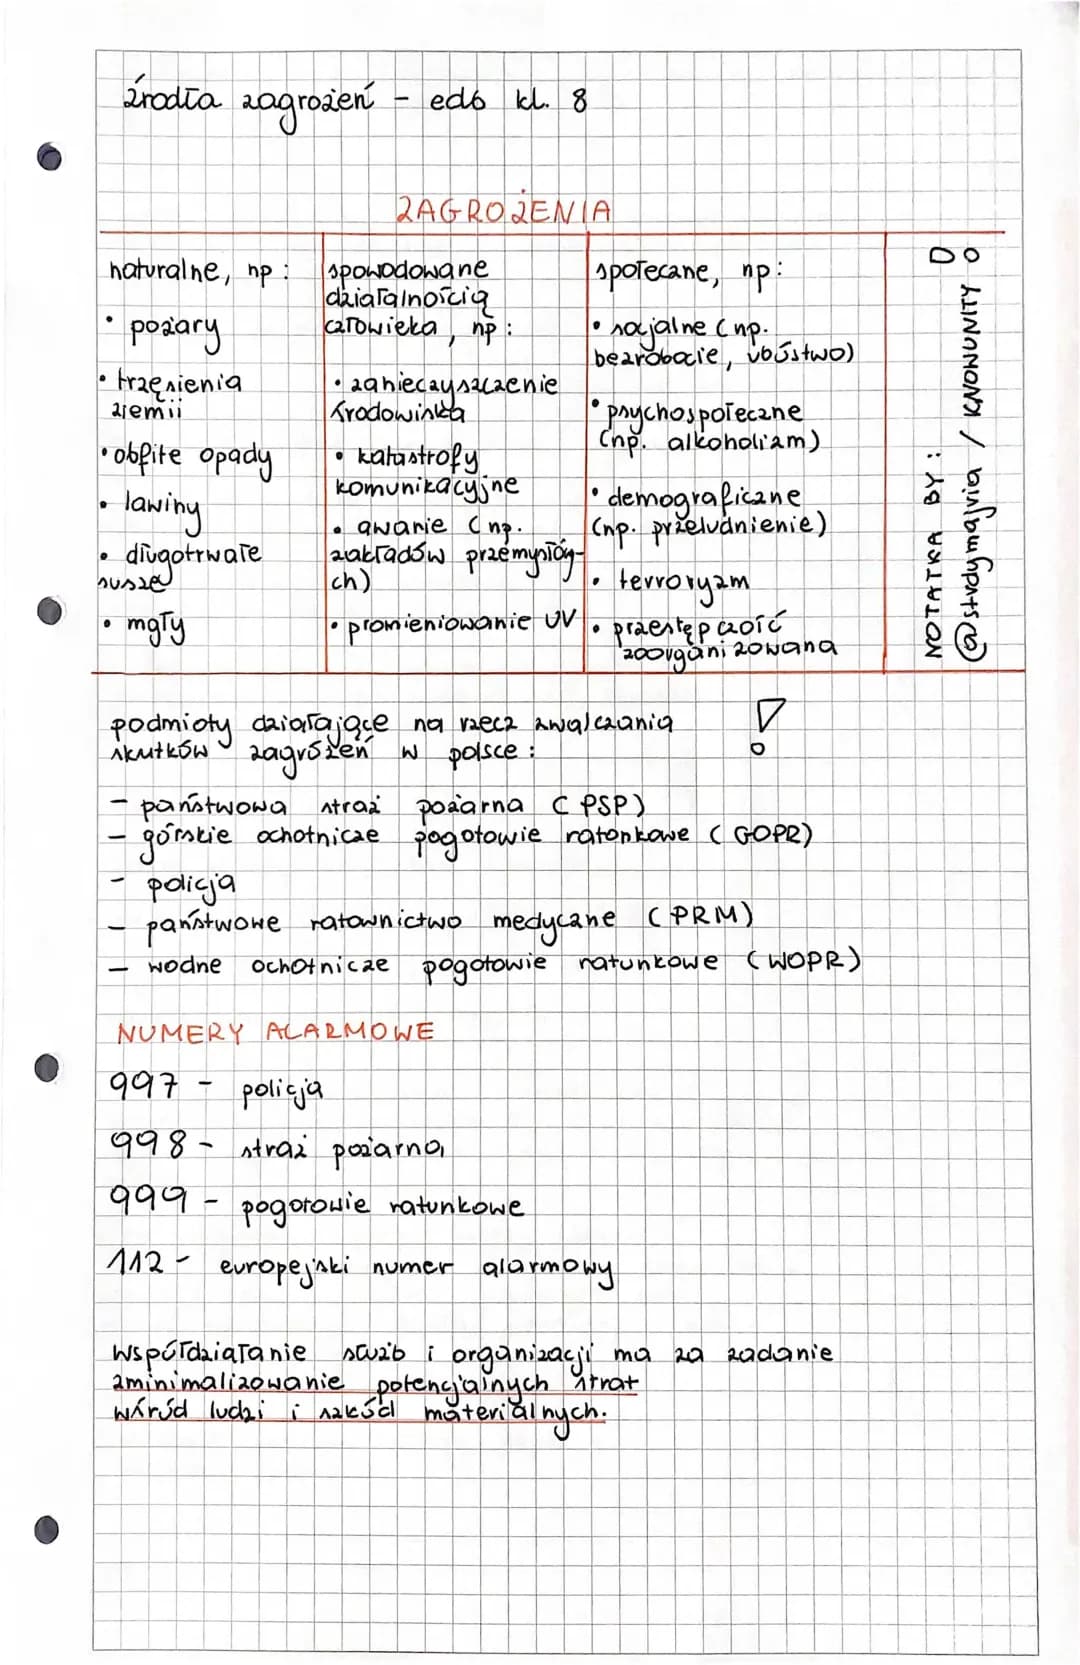 źrodła zagrożeń - edb kl. 8
ZAGROŻENIA
naturalne, np:
• pożary
• trzęsienia
ziemii
• obfite opady
• lawiny
• długotrwałe
susze
• mgły
spowodowane
działalnością
człowieka, np:
• zanieczyszczenie
środowiska
• katastrofy
komunikacyjne
• awarie (np.
zakładów przemysłowy-
ch)
• promieniowanie UV
społeczne, np:
• socjalne (np.
bezrobocie, ubóstwo)
• psychospołeczne
(np. alkoholizm)
• demograficzne
(np. przeludnienie)
• terroryzm
• przestępczość
zoorganizowana
NOTATKA BY:
@studymajvia / KNOWUNITY
podmioty działające na rzecz zwalczania
skutków zagrożeń w polsce:
- państwowa straż pożarna (PSP)
- górskie ochotnicze pogotowie ratonkowe (GOPR)
- policja
- państwowe ratownictwo medyczne (PRM)
- wodne ochotnicze pogotowie ratunkowe (WOPR)
NUMERY ALARMOWE
997 - policja
998 - straż pożarna
999 - pogotowie ratunkowe
112 - europejski numer alarmowy
współdziałanie służb i organizacji ma za zadanie
zminimalizowanie potencjalnych strat
wśród ludzi i szkód materialnych.